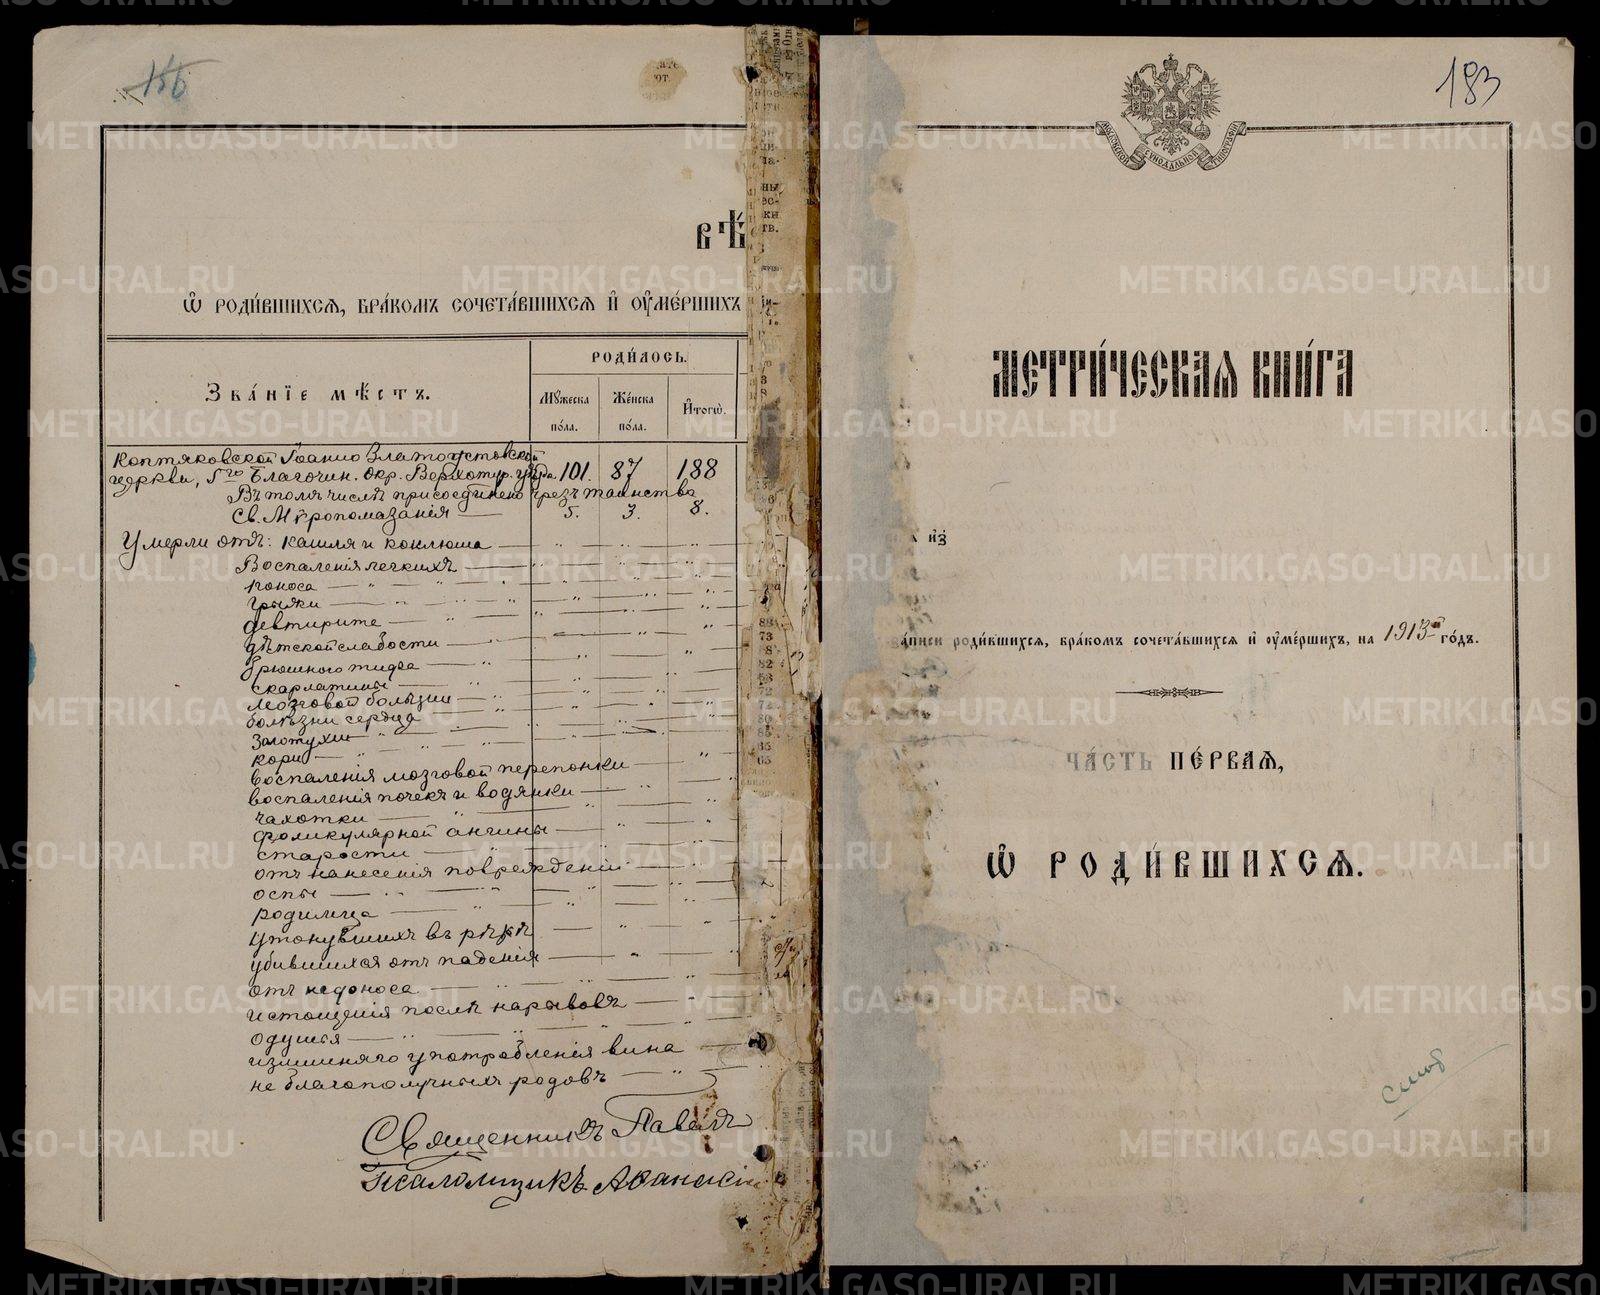 156
вѣ
ѽ роди́вшихсѧ, бра́комъ сочета́вшихсѧ и҆ ᲂу҆ме́ршихъ
Зва́нїе мѣ́стъ.
роди́лось.
Мꙋ́жеска по́ла.
Же́нска по́ла.
И҆тогѡ̀.
Коптяковской Іоанно Златоустовской
церкви, 5го Благочин. окр. Верхотур. уѣзда 101. 87 188
Въ томъ числѣ присоединено чрезъ таинство
Св. Мѵропомазанія 5. 3. 8.
Умерли отъ: кашля и коклюша
Воспаленія легкихъ
поноса
грыжи
девтирите
дѣтской слабости
брюшного тифа
скарлатины
мозговой болѣзни
болѣзни сердца
Золотухи
кори
воспаленія мозговой перепонки
воспаленія почекъ и водянки
чахотки
фоликулярной ангины
старости
отъ нанесенія поврежденій
оспы
родимца
утонувшихъ въ рѣкѣ
убившихся отъ паденія
отъ недоноса
истощенія послѣ нарывовъ
одушья
излишняго употребленія вина
не благополучныхъ родовъ
Священникъ Павелъ
Псаломщикъ Аѳанасій
183
МОСКОВСКОЙ СѴНОДАЛЬНОЙ ТИПОГРАФІИ
метри́ческаѧ кни́га
из̾
за́писи роди́вшихсѧ, бра́комъ сочета́вшихсѧ и҆ ᲂу҆ме́ршихъ, на 1913й го́дъ.
ча́сть пе́рваѧ,
ѽ роди́вшихсѧ.
METRIKI.GASO-URAL.RU